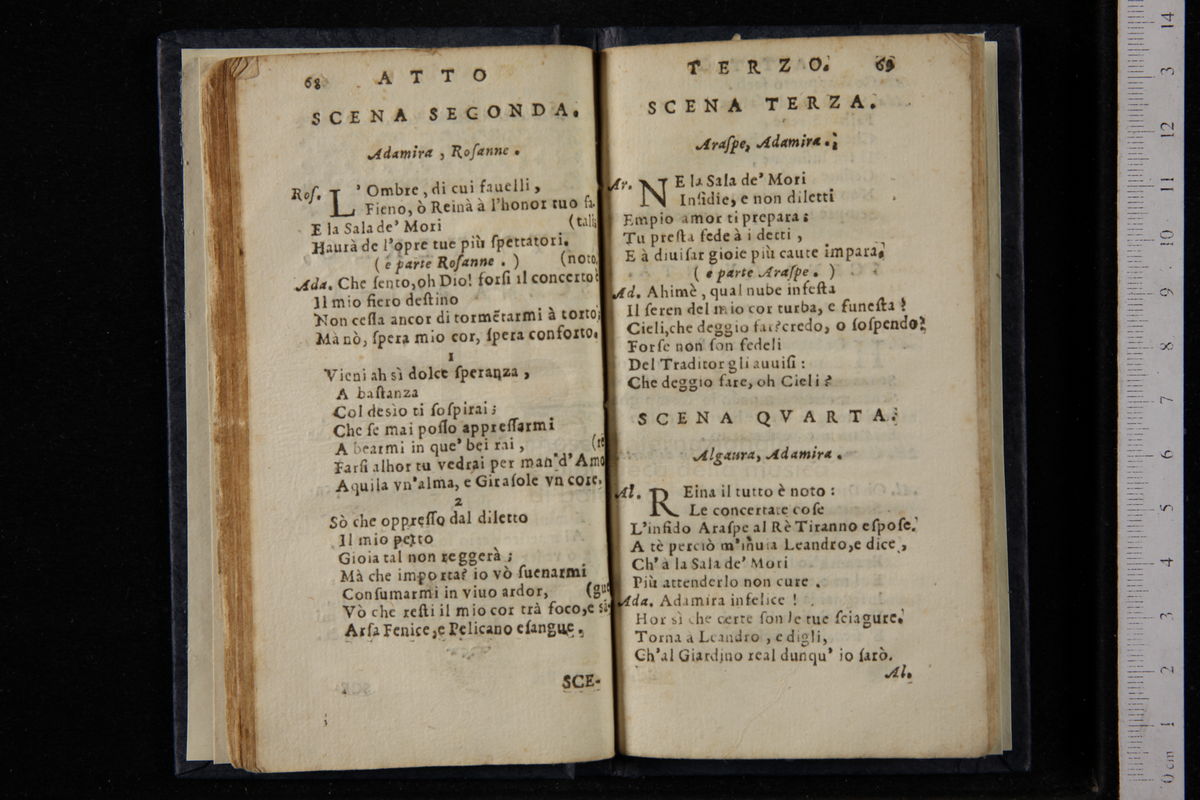 68 ATTO
SCENA SECONDA.
Adamira, Roſanne.
Roſ. L'Ombre, di cui fauelli,
Fieno, ò Reinà à l'honor tuo fa-
E la Sala de' Mori (tali;
Haurà de l'opre tue più ſpettatori.
(e parte Roſanne.) (noto,
Ada. Che ſento, oh Dio! forſi il concerto è
Il mio fiero deſtino
Non ceſſa ancor di tormẽtarmi à torto;
Mà nò, ſpera mio cor, ſpera conforto.
1
Vieni ah sì dolce ſperanza,
A baſtanza
Col desìo ti ſoſpirai;
Che ſe mai poſſo appreſſarmi
A bearmi in que' bei rai, (re
Farſi alhor tu vedrai per man' d'Amo
Aquila vn'alma, e Giraſole vn core.
2
Sò che oppreſſo dal diletto
Il mio petto
Gioia tal non reggerà;
Mà che importa? io vò ſuenarmi
Conſumarmi in viuo ardor, (gue
Vò che reſti il mio cor trà foco, e sā-
Arſa Fenice, e Pelicano eſangue.
SCE-
TERZO. 69
SCENA TERZA.
Araſpe, Adamira.
Ar. NE la Sala de' Mori
Inſidie, e non diletti
Empio amor ti prepara;
Tu preſta fede à i detti,
E à diuiſar gioie più caute impara.
(e parte Araſpe.)
Ad. Ahimè, qual nube infeſta
Il ſeren del mio cor turba, e funeſta?
Cieli, che deggio far? credo, o ſoſpendo?
Forſe non ſon fedeli
Del Traditor gli auuiſi:
Che deggio fare, oh Cieli?
SCENA QVARTA.
Algaura, Adamira.
Al. REina il tutto è noto:
Le concertate coſe
L'infido Araſpe al Rè Tiranno eſpoſe.
A tè perciò m'inuia Leandro, e dice,
Ch'a la Sala de' Mori
Più attenderlo non cure.
Ada. Adamira infelice!
Hor sì che certe ſon le tue ſciagure.
Torna à Leandro, e digli,
Ch'al Giardino real dunqu' io ſarò.
Al.